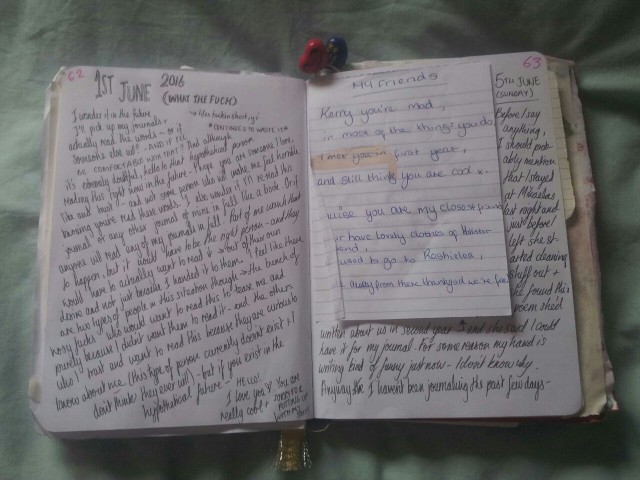 62
1ST JUNE 2016
(WHAT THE FUCK)
I wonder if in the future
I'll pick up my journals +
actually read this words - or if
someone else will - AND IF
hypothetical person
reading this right now in the future - Hope you are someone I love,
like and trust - and not some person who will make me feel horrible
knowing you've read these words. I also wonder if I'll re read this
journal or any other journal of mine in full like a book. Or if
anyone will read any of my journals in full. Part of me wants that
to happen, but it would have to be the right person - and they
would have to actually want to read it - out of their own
desire and not just because I handed it to them. I feel like there
are two types of people in this situation though - the bunch of
nosy fucks who would want to read this to tease me and
purely because I didn't want them to read it - and the other
who I trust and want to read this because they are curious to
know about me (this type of person currently doesn't exist + I
don't think they ever will) - but if you exist in the
hypothetical future -
HELLO!
I love you YOU ARE
really cool!
63
My Friends
Kerry you're mad,
in most of the things you do
I met you in first year,
and still think you are cool x.
you are my closest friend
have lovely clothes of Hollister
kind,
used to go to
away from there thankgod we're free
5TH JUNE
(SUNDAY)
Before I say
anything,
I should prob-
ably mention
that I stayed
at Mikaelas
last night and
just before
left she st-
arted cleaning
stuff out +
found this
poem she'd
written about us in second year + and she said I could
have it for my journal. For some reason my hand is
writing kind of funny just now - I dont know why.
Anyway tho I haven't been journaling the past few days -